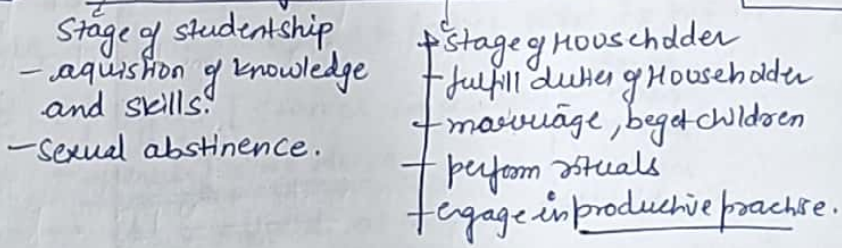 Stage of studentship
- aquistion of knowledge
and skills.
- Sexual abstinence.
Stage of Householder
- fulfill duties of Householder
- marriage, beget children
- perform rituals
- engage in productive practise.